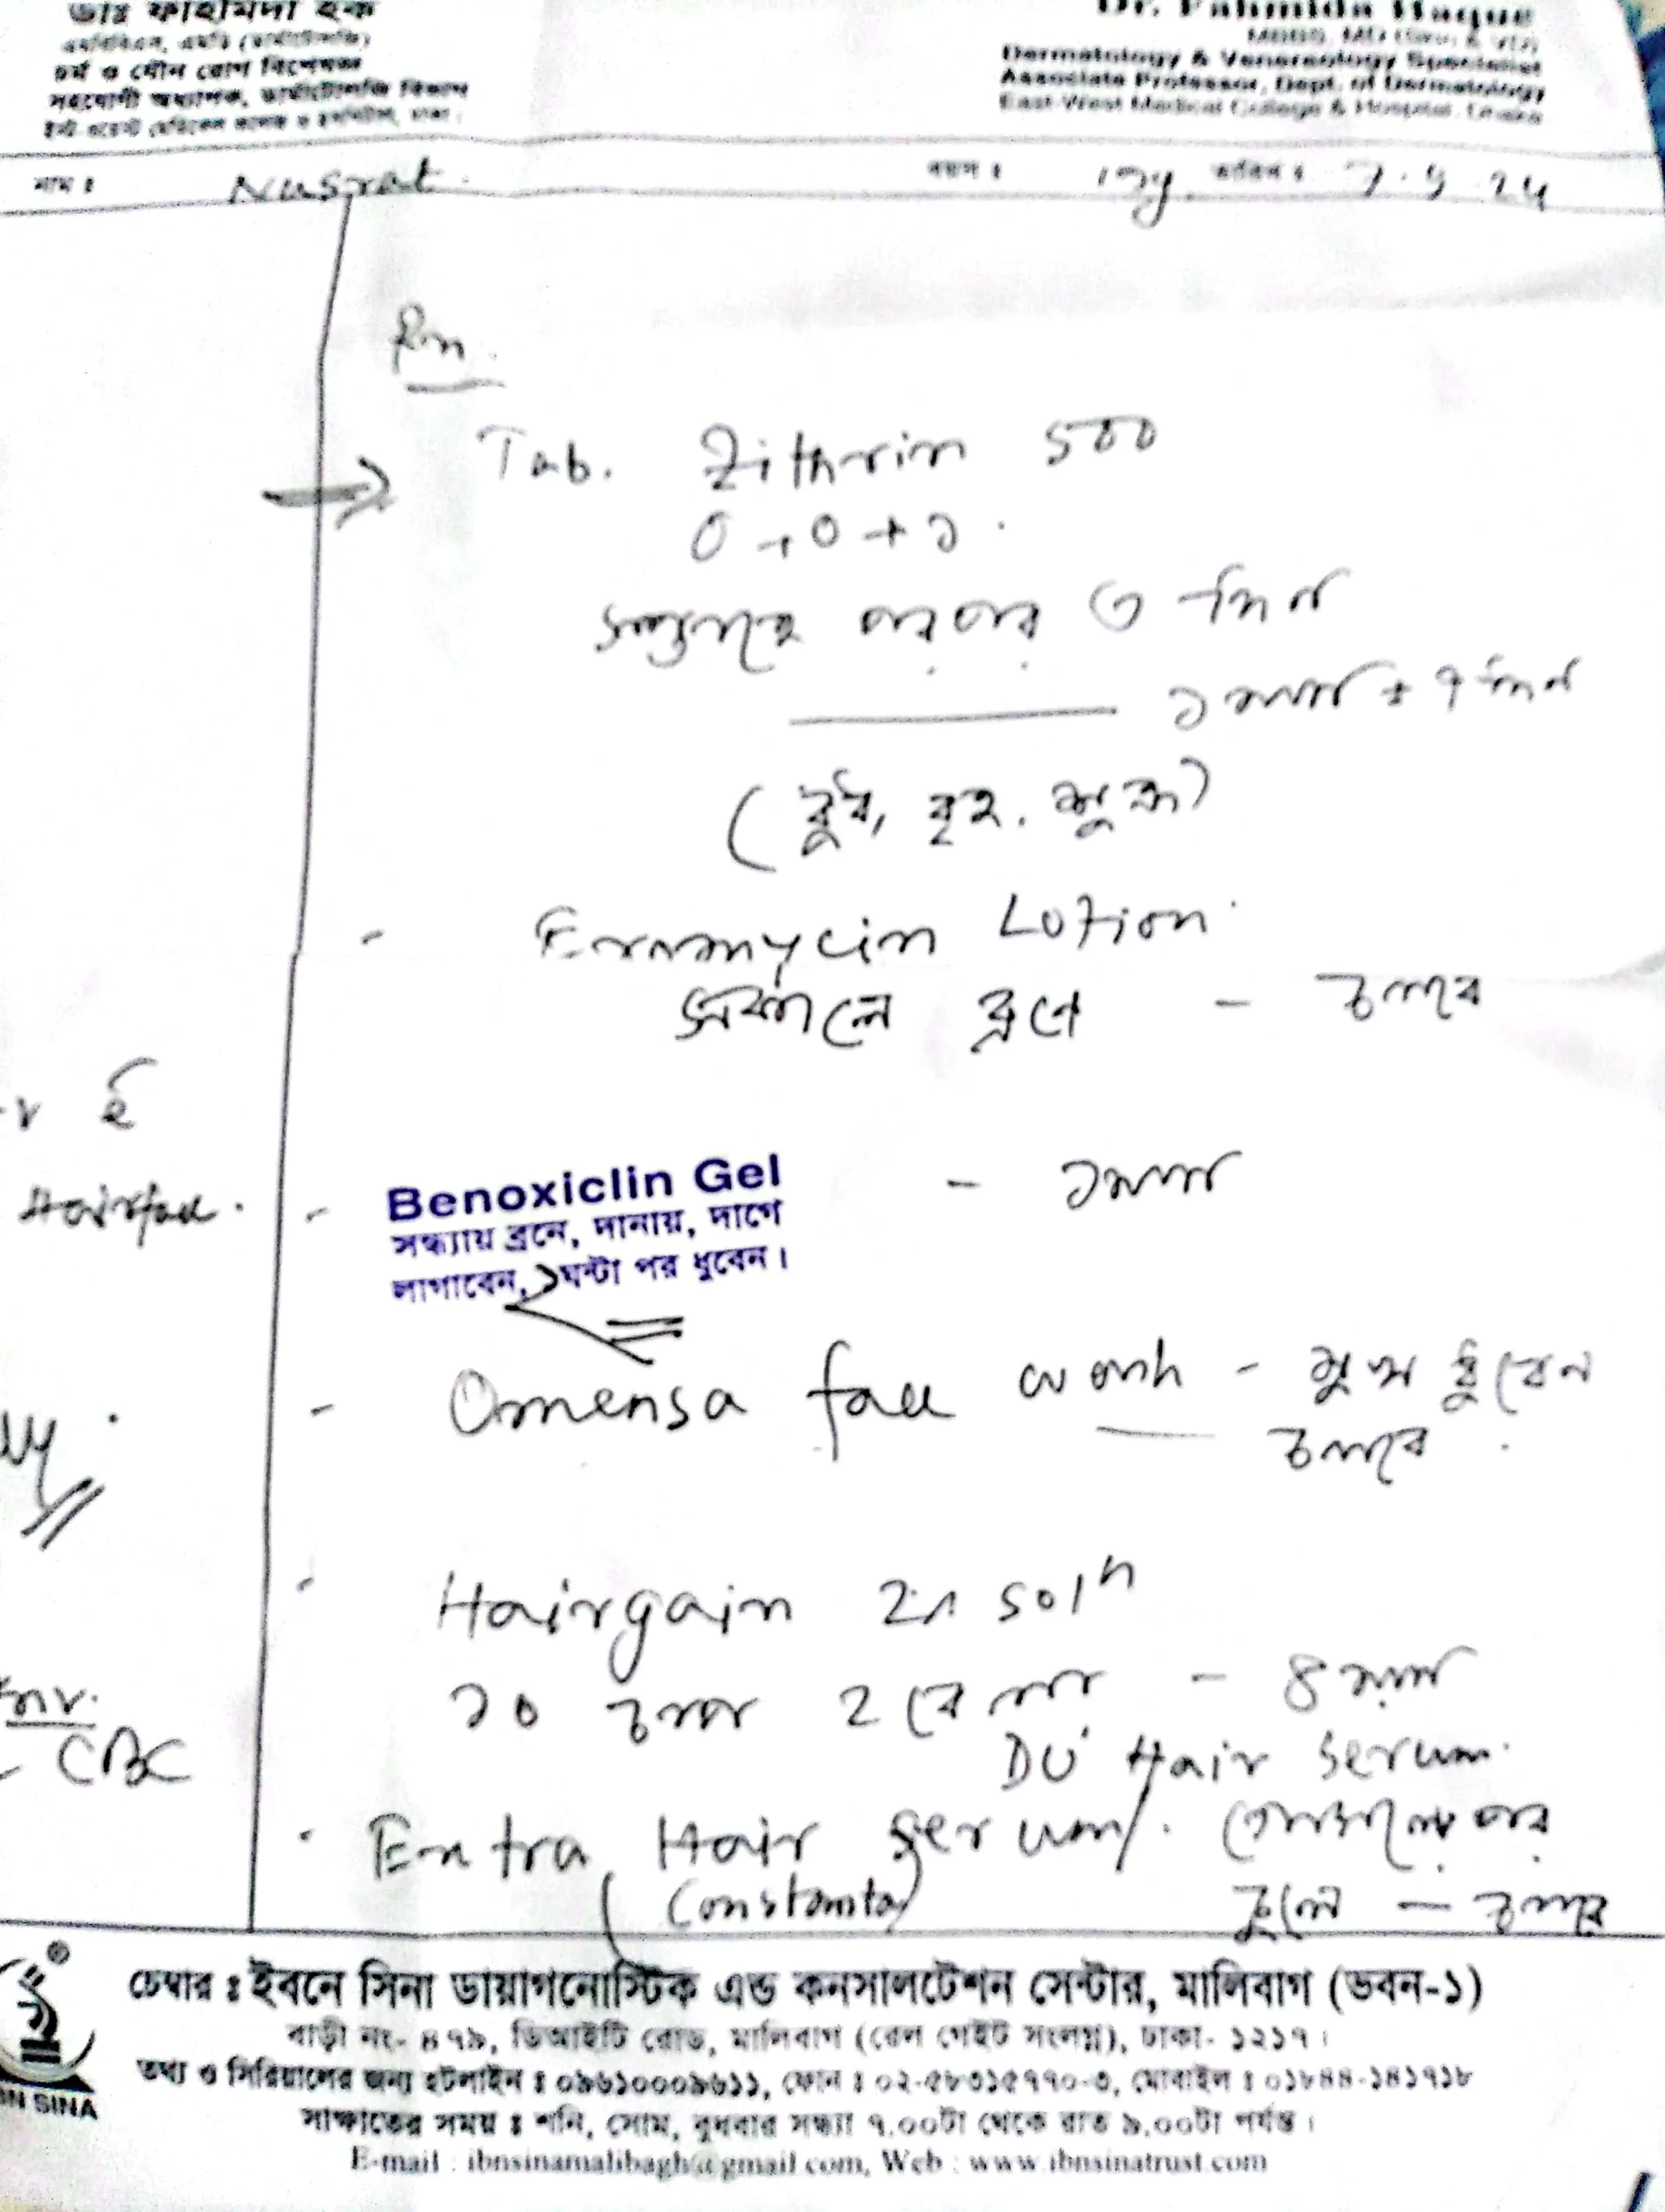 ডাঃ ফাহমিদা হক
এমবিবিএস, এমডি (ডার্মাটোলজি)
চর্ম ও যৌন রোগ বিশেষজ্ঞ
সহযোগী অধ্যাপক, ডার্মাটোলজি বিভাগ
ইস্ট ওয়েস্ট মেডিকেল কলেজ ও হাসপিটাল, ঢাকা।
Dr. Fahmida Haque
MBBS, MD
Dermatology & Venereology Specialist
Associate Professor, Dept. of Dermatology
East-West Medical College & Hospital, Dhaka
নাম ঃ Nusrat. বয়স ঃ 17y. তারিখ ঃ 7.5.24
Tab. Zithrin 500
0+0+১
সপ্তাহে পরপর ৩ দিন
১ মাস ৭ দিন
(বুধ, বৃহ. শুক্র)
- Eromycin Lotion
সকালে ব্রণে - চলবে
Hairfall.
- Benoxiclin Gel - ১মাস
সন্ধ্যায় ব্রনে, দানায়, দাগে
লাগাবেন, ১ঘন্টা পর ধুবেন।
- face wash - মুখ ধুবেন
চলবে
- Hairgain 2% Solⁿ
১০ ২ বেলা - ৪ মাস
Inv.
- CBC
Hair Serum
Extra Hair Serum/ গোসলের পর
চুলে - চলবে
IBN SINA
চেম্বার ঃ ইবনে সিনা ডায়াগনোস্টিক এন্ড কনসালটেশন সেন্টার, মালিবাগ (ভবন-১)
বাড়ী নং- ৪৭৯, ডিআইটি রোড, মালিবাগ (রেল গেইট সংলগ্ন), ঢাকা- ১২১৭।
তথ্য ও সিরিয়ালের জন্য হটলাইন ঃ ০৯৬১০০০৯৬১১, ফোন ঃ ০২-৫৮৩১৫৭৭০-৩, মোবাইল ঃ ০১৮৪৪-১৪১৭১৮
সাক্ষাতের সময় ঃ শনি, সোম, বুধবার সন্ধ্যা ৭.০০টা থেকে রাত ৯.০০টা পর্যন্ত।
E-mail : ibnsinamalibagh@gmail.com, Web : www.ibnsinatrust.com